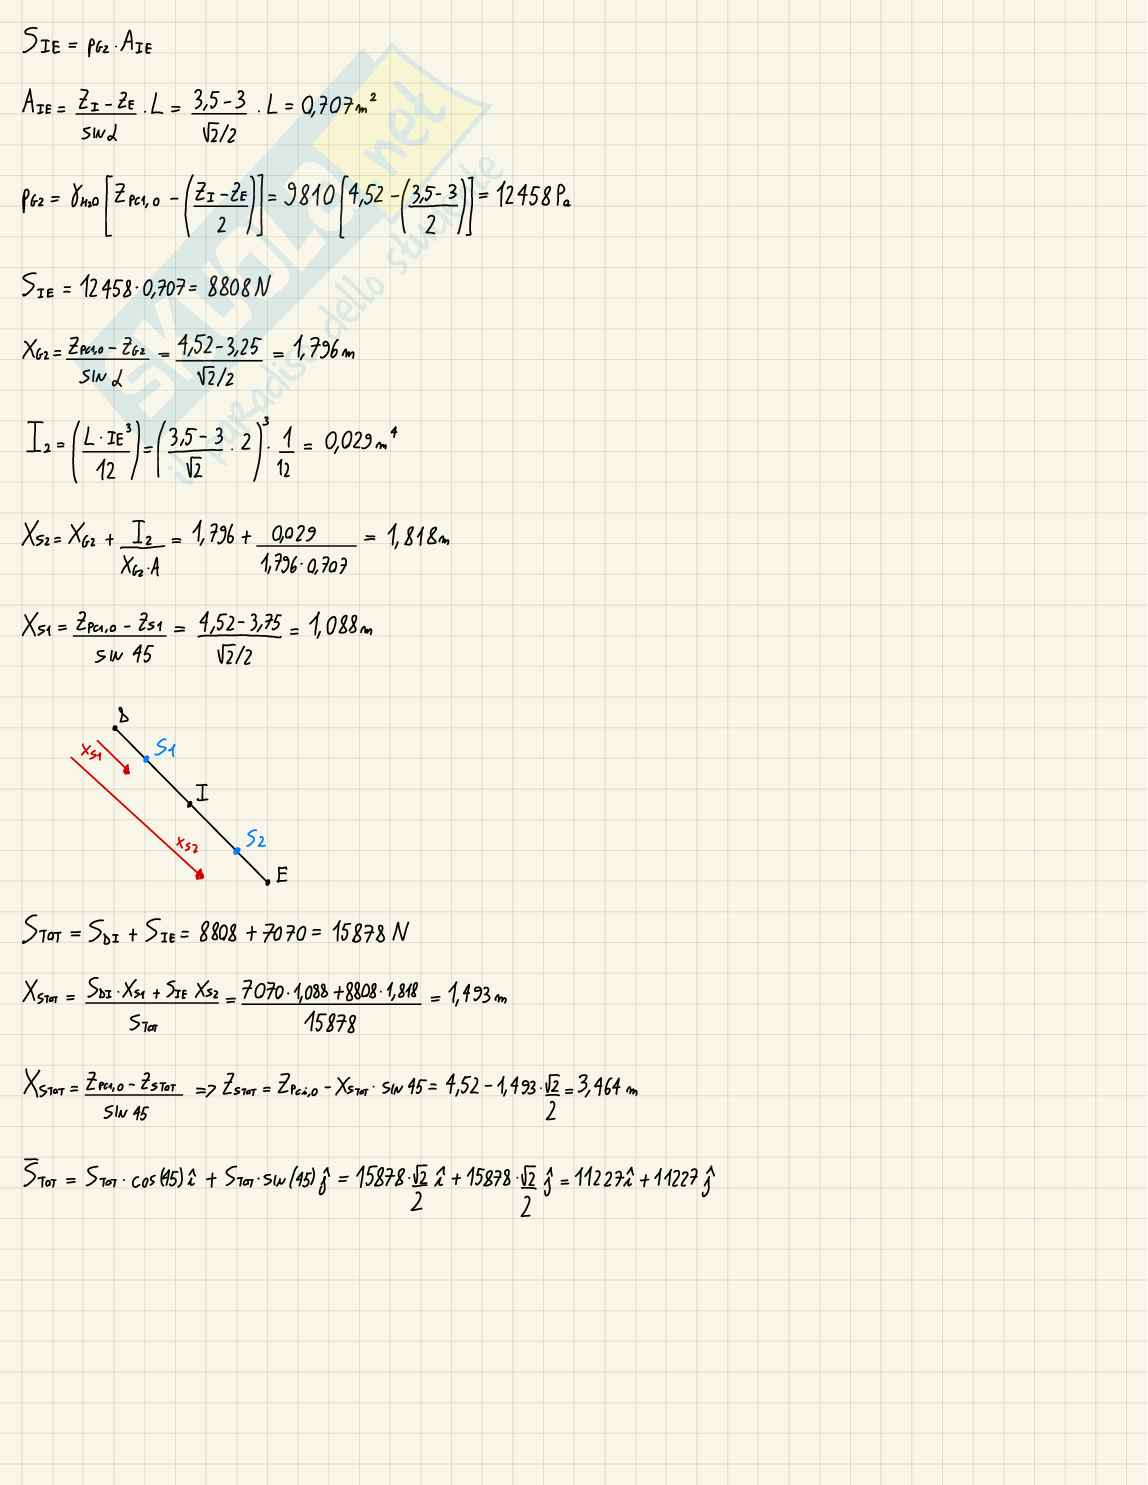 S_IE = p_G2 · A_IE
A_IE = (Z_I - Z_E)/(sin α) · L = (3,5 - 3)/(√2/2) · L = 0,707 m²
p_G2 = γ_H2O [Z_PC1,0 - ((Z_I - Z_E)/2)] = 9810 [4,52 - ((3,5 - 3)/2)] = 12458 Pa
S_IE = 12458 · 0,707 = 8808 N
X_G2 = (Z_PC1,0 - Z_G2)/(sin α) = (4,52 - 3,25)/(√2/2) = 1,796 m
I_2 = (L · IE³/12) = ((3,5 - 3)/√2 · 2)³ · 1/12 = 0,029 m⁴
X_S2 = X_G2 + I_2/(X_G2 · A) = 1,796 + 0,029/(1,796 · 0,707) = 1,818 m
X_S1 = (Z_PC1,0 - Z_S1)/(sin 45) = (4,52 - 3,75)/(√2/2) = 1,088 m
D
S1
X_S1
I
S2
X_S2
E
S_TOT = S_DI + S_IE = 8808 + 7070 = 15878 N
X_STOT = (S_DI · X_S1 + S_IE X_S2)/S_TOT = (7070 · 1,088 + 8808 · 1,818)/15878 = 1,493 m
X_STOT = (Z_PC1,0 - Z_STOT)/(sin 45) => Z_STOT = Z_PCi,0 - X_STOT · sin 45 = 4,52 - 1,493 · √2/2 = 3,464 m
S̅_TOT = S_TOT · cos(45) î + S_TOT · sin(45) ĵ = 15878 · √2/2 î + 15878 · √2/2 ĵ = 11227 î + 11227 ĵ
SKUOLA.net
il paradiso dello studente